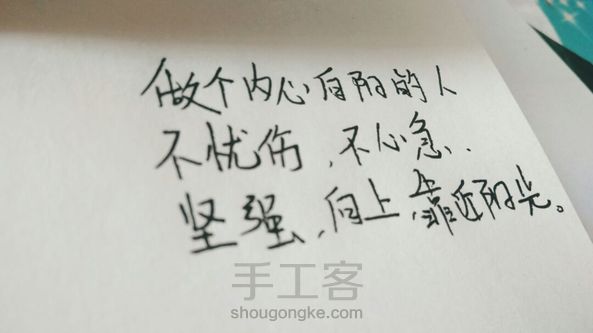 做个内心向阳的人
不忧伤,不心急.
坚强、向上,靠近阳光。
手工客
shougongke.com